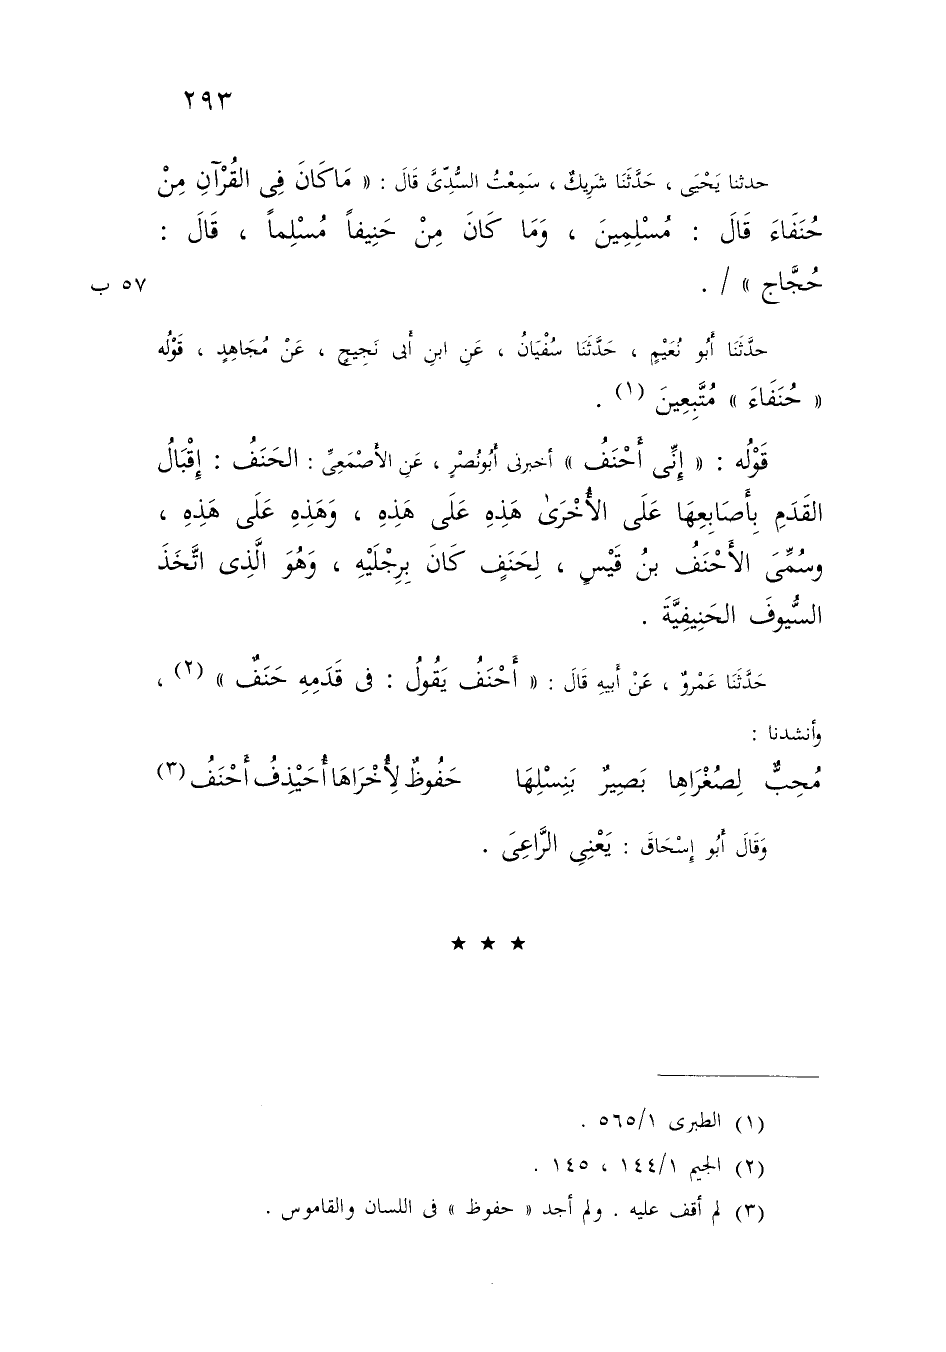 ٢٩٣
حدثنا يَحْيَى ، حَدَّثَنَا شَرِيكٌ ، سَمِعْتُ السُّدِّىَّ قَالَ : « مَاكَانَ فِى القُرْآنِ مِنْ
حُنَفَاءَ قَالَ : مُسْلِمِينَ ، وَمَا كَانَ مِنْ حَنِيفاً مُسْلِماً ، قَالَ :
حُجَّاج » / .
٥٧ ب
حدَّثَنَا أَبُو نُعَيْمٍ ، حَدَّثَنَا سُفْيَانُ ، عَنِ ابنِ أَبى نَجِيحٍ ، عَنْ مُجَاهِدٍ ، قَوْلُه
« حُنَفَاءَ » مُتَّبِعِينَ (١) .
قَوْلُه : « إِنِّى أَحْنَفُ » أخبرنى أَبُونُصْرٍ ، عَنِ الأَصْمَعِىِّ : الحَنَفُ : إقْبَالُ
القَدَمِ بِأَصَابِعِهَا عَلَى الأُخْرَىٰ هَذِهِ عَلَى هَذِهِ ، وَهَذِهِ عَلَى هَذِهِ ،
وسُمِّىَ الأَحْنَفُ بنُ قَيْسٍ ، لِحَنَفٍ كَانَ بِرِجْلَيْهِ ، وَهُوَ الَّذِى اتَّخَذَ
السُّيوفَ الحَنِيفِيَّةَ .
حَدَّثَنَا عَمْروٌ ، عَنْ أَبيهِ قَالَ : « أَحْنَفُ يَقُولُ : فى قَدَمِهِ حَنَفٌ » (٢) ،
وأنشدنا :
مُحِبٌّ لِصُغْرَاهِا بَصِيرٌ بَنِسْلِهَا حَفُوظٌ لِأُخْرَاهَا أُحَيْذِفُ أَحْنَفُ (٣)
وَقَالَ أَبُو إسْحَاقَ : يَعْنِى الرَّاعِىَ .
★ ★ ★
(١) الطبرى ٥٦٥/١ .
(٢) الجيم ١٤٤/١ ، ١٤٥ .
(٣) لم أقف عليه . ولم أجد « حفوظ » فى اللسان والقاموس .